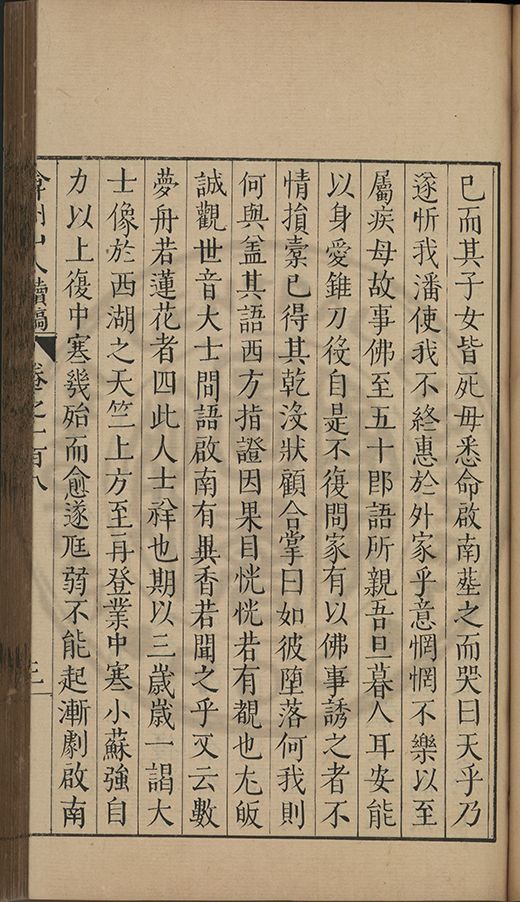 已而其子女皆死毋悉命啟南塟之而哭曰天乎乃
遂忻我潘使我不終惠於外家乎意惘惘不樂以至
屬疾母故事佛至五十郎語所親吾旦暮人耳安能
以身愛錐刀役自是不復問家有以佛事誘之者不
情損槖已得其乾沒狀顧合掌曰如彼墮落何我則
何與盖其語西方指證因果目恍恍若有覩也尢皈
誠觀世音大士問語啟南有異香若聞之乎又云數
夢舟若蓮花者四此人士祥也期以三歲歲一謁大
士像於西湖之天竺上方至再登業中寒小蘇強自
力以上復中寒幾殆而愈遂尫弱不能起漸劇啟南
弇州山人續稿 卷之一百八 三